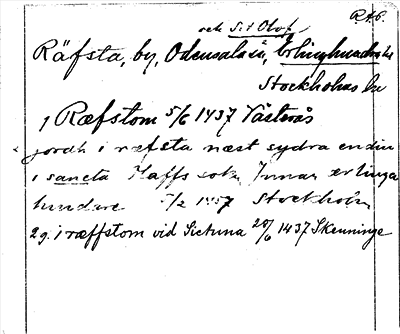 RAP.
och S:t Olof
Räfsta, by, Odensala sn, Erlinghundra hd
Stockholms län
1 Ræfstom 5/6 1437 Västerås
jordh i ræfsta næst sydra endin
i sancta Olaffs sokn Innan ærlinga
hundare 5/2 1457 Stockholm
2 g. i ræffstom vid Sictuna 20/6 1437 Skenninge